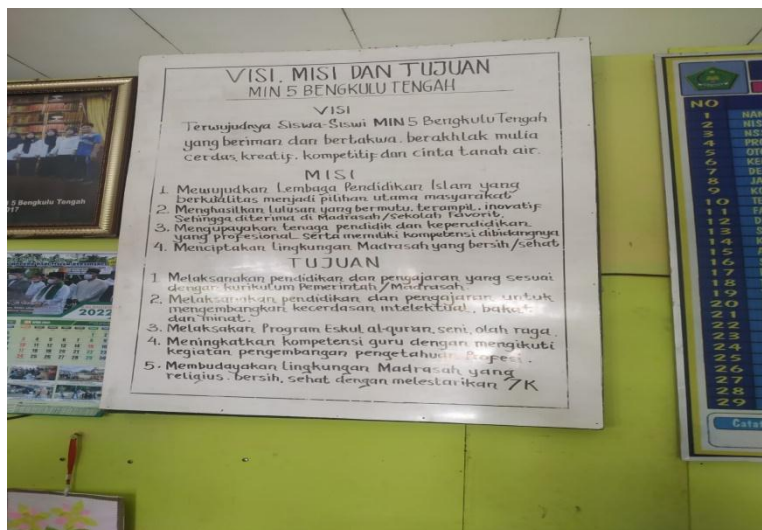 VISI, MISI DAN TUJUAN
MIN 5 BENGKULU TENGAH
VISI
Terwujudnya Siswa-Siswi MIN 5 Bengkulu Tengah
yang beriman dan bertakwa, berakhlak mulia
cerdas, kreatif, kompetitif dan cinta tanah air.
MISI
1. Mewujudkan Lembaga Pendidikan Islam yang
berkualitas menjadi pilihan utama masyarakat
2. Menghasilkan lulusan yang bermutu, terampil, inovatif
Sehingga diterima di Madrasah/Sekolah Favorit.
3. Mengupayakan tenaga pendidik dan kependidikan
yang profesional serta memiliki kompetensi dibidangnya
4. Menciptakan lingkungan Madrasah yang bersih/sehat
TUJUAN
1. Melaksanakan pendidikan dan pengajaran yang sesuai
dengan kurikulum Pemerintah/Madrasah.
2. Melaksanakan pendidikan dan pengajaran untuk
mengembangkan kecerdasan intelektual, bakat
dan minat.
3. Melaksakan Program Eskul al-qur'an, seni, olah raga.
4. Meningkatkan kompetensi guru dengan mengikuti
kegiatan pengembangan pengetahuan Profesi.
5. Membudayakan Lingkungan Madrasah yang
religius, bersih, sehat dengan melestarikan 7K
5 Bengkulu Tengah
2022
NO
1
2
3
4
5
6
7
8
9
10
11
12
13
14
15
16
17
18
19
20
21
22
23
24
25
26
27
28
29